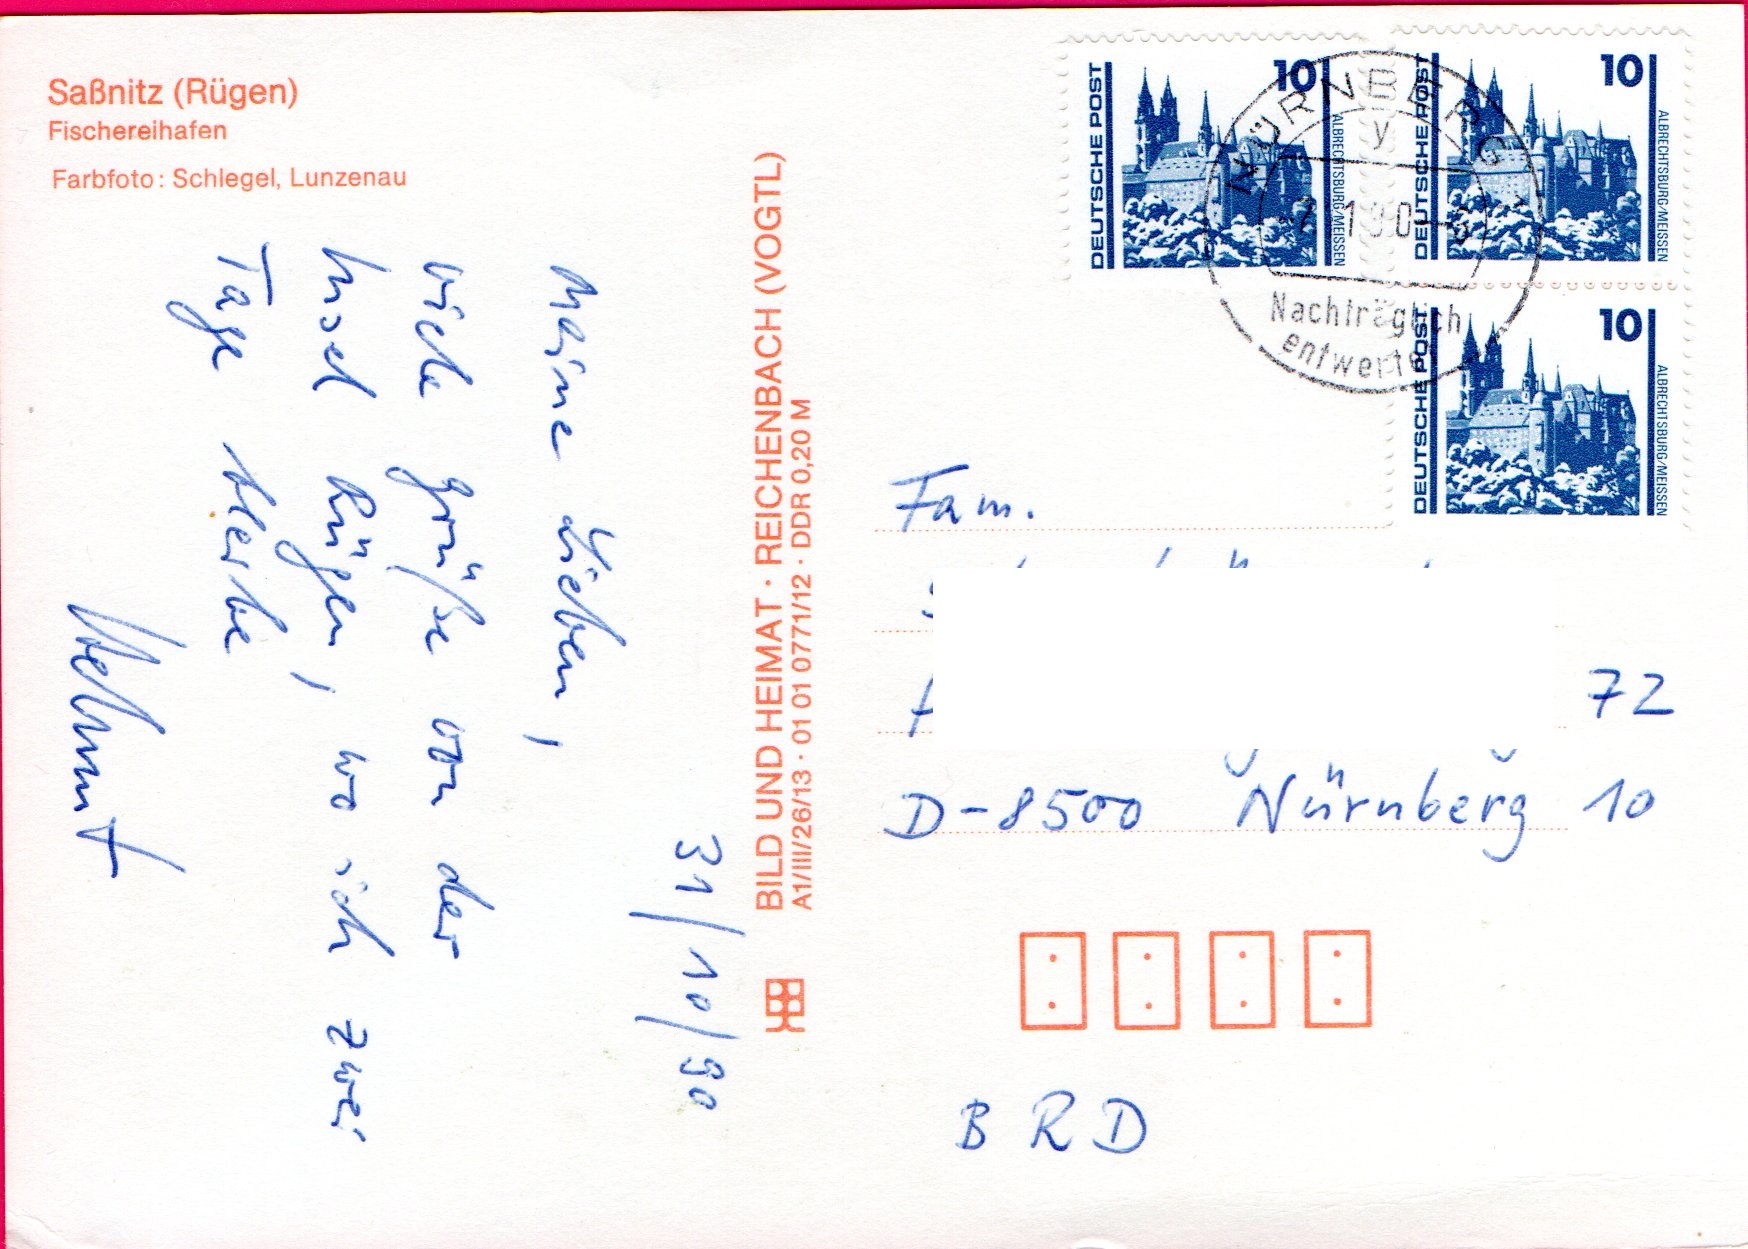 Saßnitz (Rügen)
Fischereihafen
Farbfoto: Schlegel, Lunzenau
31/10/90
Meine Lieben,
viele Grüße von der
Insel Rügen, wo ich zwei
Tage bleibe
Helmut
BILD UND HEIMAT · REICHENBACH (VOGTL)
A1/III/26/13 · 01 01 0771/12 · DDR 0,20 M
DEUTSCHE POST
10
ALBRECHTSBURG/MEISSEN
DEUTSCHE POST
10
ALBRECHTSBURG/MEISSEN
DEUTSCHE POST
10
ALBRECHTSBURG/MEISSEN
NÜRNBERG
y
Nachträglich
entwertet
Fam.
72
D-8500 Nürnberg 10
BRD